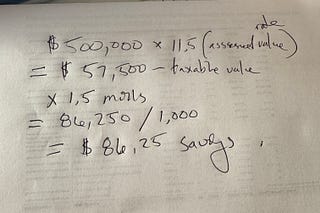 rate
$500,000 × 11,5 (assessed value)
= $ 57,500 - taxable value
× 1,5 mills
= 86,250 / 1,000
= $ 86,25 savings.